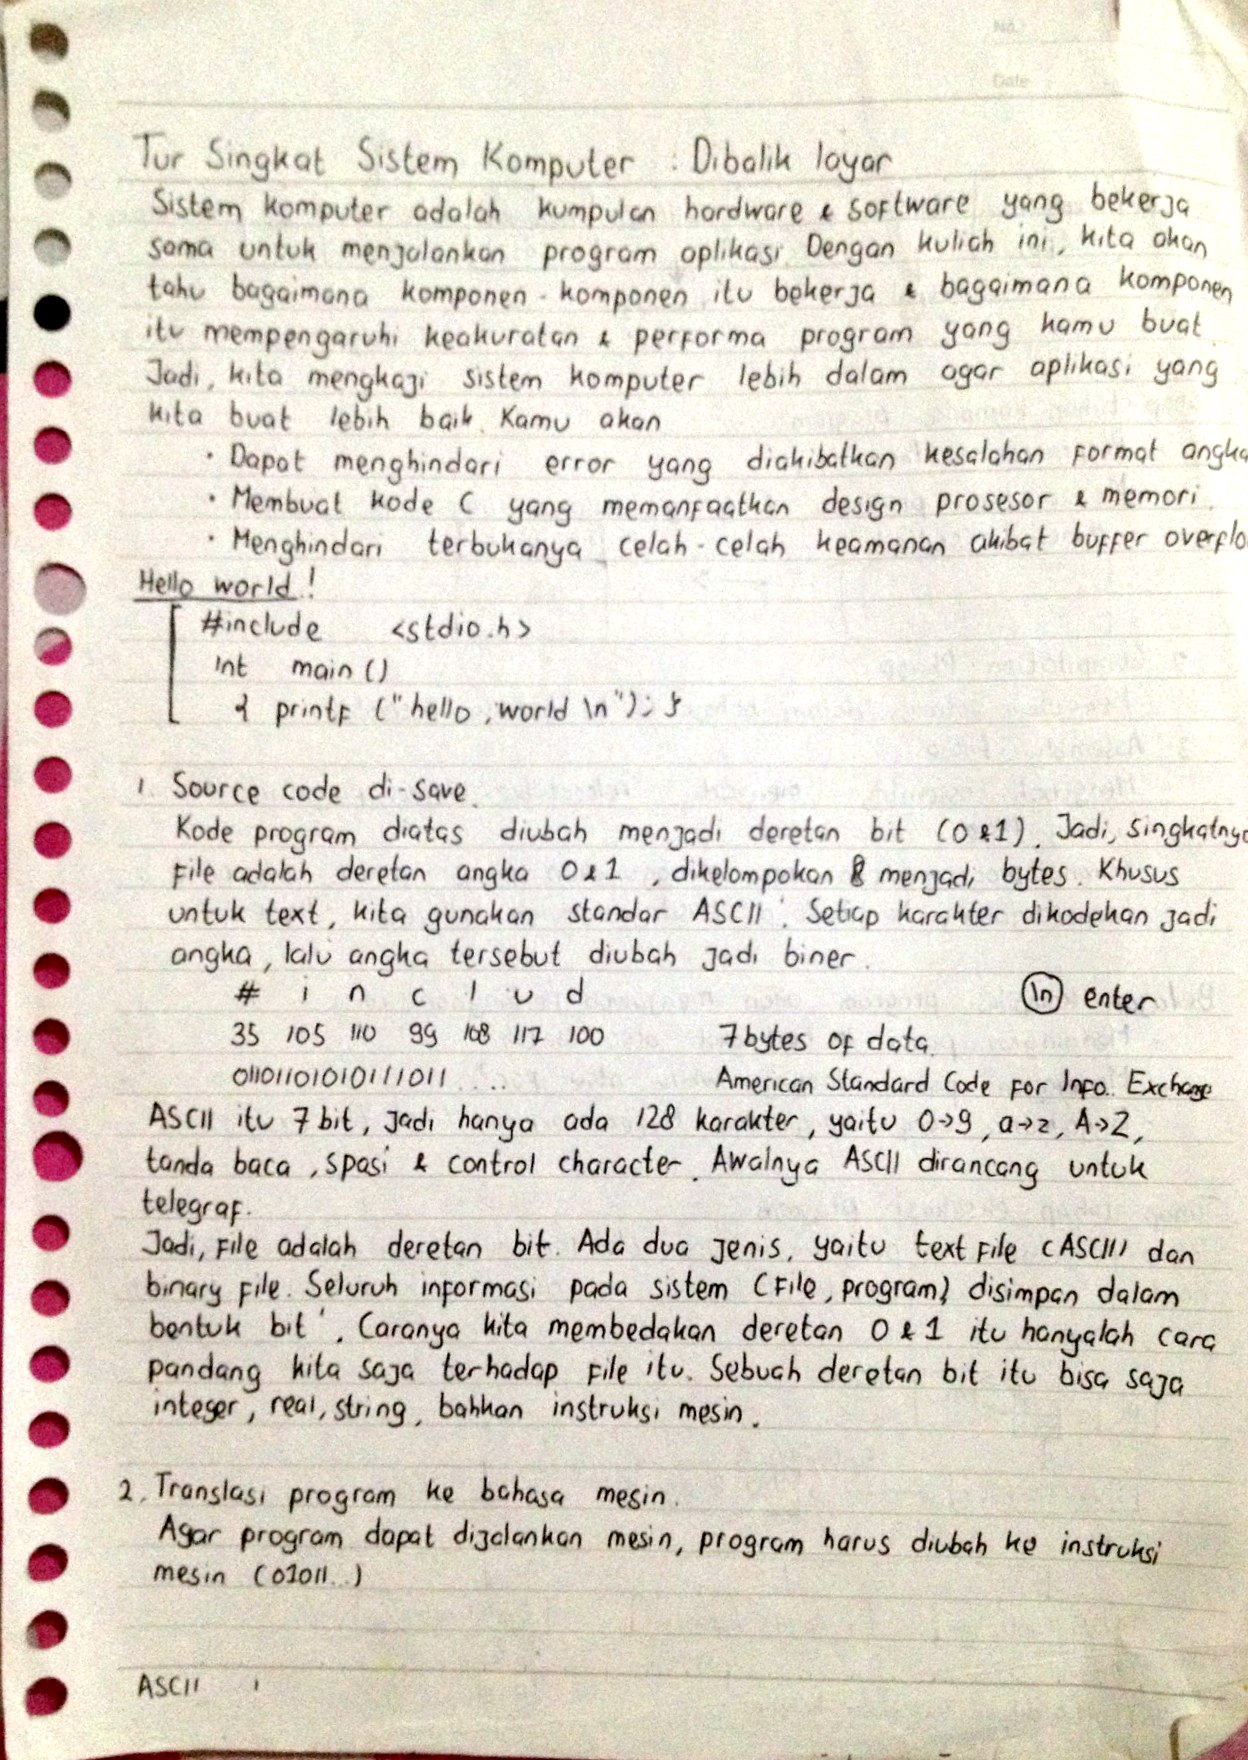 No.
Date
Tur Singkat Sistem Komputer : Dibalik layar
Sistem komputer adalah kumpulan hardware & software yang bekerja
sama untuk menjalankan program aplikasi. Dengan kuliah ini, kita akan
tahu bagaimana komponen-komponen itu bekerja & bagaimana komponen
itu mempengaruhi keakuratan & performa program yang kamu buat.
Jadi, kita mengkaji sistem komputer lebih dalam agar aplikasi yang
kita buat lebih baik. Kamu akan
• Dapat menghindari error yang diakibatkan kesalahan format angka
• Membuat kode C yang memanfaatkan design prosesor & memori.
• Menghindari terbukanya celah-celah keamanan akibat buffer overflo
Hello world!
#include <stdio.h>
int main ()
{ printf ("hello, world \n"); }
1. Source code di-save.
Kode program diatas diubah menjadi deretan bit (0 & 1). Jadi, singkatnya
file adalah deretan angka 0 & 1, dikelompokan 8 menjadi bytes. Khusus
untuk text, kita gunakan standar ASCII. Setiap karakter dikodekan jadi
angka, lalu angka tersebut diubah jadi biner.
# i n c l u d \n enter
35 105 110 99 108 117 100 7 bytes of data.
0110110101011011 .... American Standard Code for Info. Exchange
ASCII itu 7 bit, jadi hanya ada 128 karakter, yaitu 0→9, a→z, A→Z,
tanda baca, spasi & control character. Awalnya ASCII dirancang untuk
telegraf.
Jadi, file adalah deretan bit. Ada dua jenis, yaitu text file (ASCII) dan
binary file. Seluruh informasi pada sistem (file, program) disimpan dalam
bentuk bit'. Caranya kita membedakan deretan 0 & 1 itu hanyalah cara
pandang kita saja terhadap file itu. Sebuah deretan bit itu bisa saja
integer, real, string, bahkan instruksi mesin.
2. Translasi program ke bahasa mesin.
Agar program dapat dijalankan mesin, program harus diubah ke instruksi
mesin (01011...)
ASCII